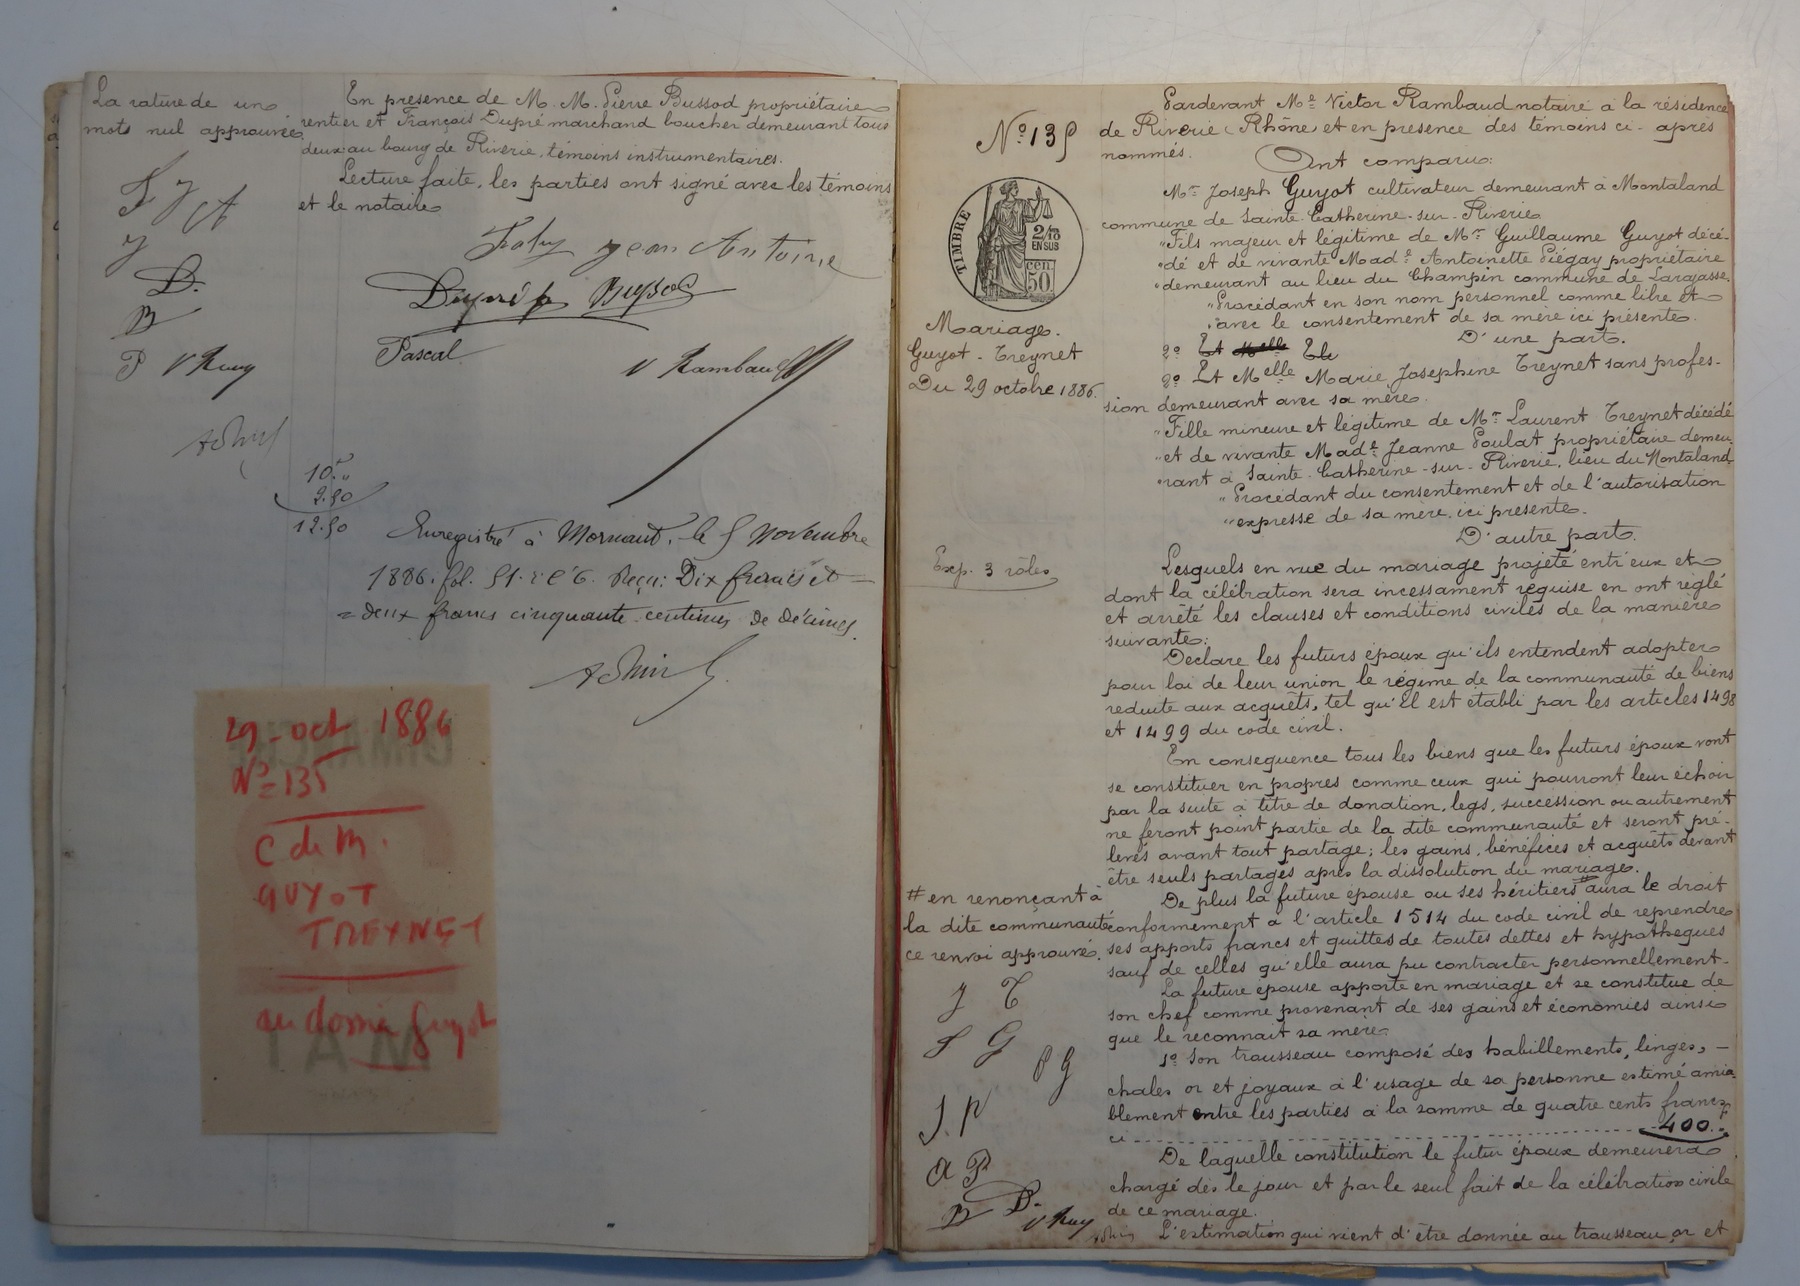 La rature de un
mots nul approuvée
En présence de M. M. Pierre Bussod propriétaire
rentier et François Dupré marchand boucher demeurant tous
deux au bourg de Riverie, témoins instrumentaires.
Lecture faite, les parties ont signé avec les témoins
et le notaire
F J A
J
D.
B
P V Ruy
Jean Antoine
Dupré f Bussod
Pascal
V Rambaud
10 "
2.50
12.50
Enregistré à Mornant, le 5 Novembre
1886. fol. 51. r. c 6. Reçu: Dix francs et
= deux francs cinquante centimes de décimes.
29 - oct 1886
No = 135
C de M.
GUYOT
TREYNET
au dossier Guyot
No. 135
TIMBRE
2/10
EN SUS
50 cen
Mariage.
Guyot - Treynet
Du 29 octobre 1886.
Exp. 3 rôles
Pardevant Me Victor Rambaud notaire à la résidence
de Riverie (Rhône) et en présence des témoins ci-après
nommés.
Ont comparu:
Mr Joseph Guyot cultivateur demeurant à Montaland
commune de Sainte-Catherine-sur-Riverie
"Fils majeur et légitime de Mr Guillaume Guyot décé-
"dé et de vivante Made Antoinette Piégay propriétaire
"demeurant au lieu du Champin commune de Larajasse.
"Procédant en son nom personnel comme libre et
"avec le consentement de sa mère ici présente.
D'une part.
2o Et Melle El
2o Et Melle Marie Josephine Treynet sans profes-
sion demeurant avec sa mère.
"Fille mineure et légitime de Mr Laurent Treynet décédé
"et de vivante Made Jeanne Poulat propriétaire demeu-
"rant à Sainte-Catherine-sur-Riverie, lieu du Montaland,
"Procédant du consentement et de l'autorisation
"expresse de sa mère, ici présente.
D'autre part.
Lesquels en vue du mariage projeté entr'eux et
dont la célébration sera incessament requise en ont réglé
et arrêté les clauses et conditions civiles de la manière
suivante:
Déclare les futurs époux qu'ils entendent adopter
pour loi de leur union le régime de la communauté de biens
réduite aux acquêts, tel qu'il est établi par les articles 1498
et 1499 du code civil.
En conséquence tous les biens que les futurs époux vont
se constituer en propres comme ceux qui pourront leur échoir
par la suite à titre de donation, legs, succession ou autrement
ne feront point partie de la dite communauté et seront pré-
levés avant tout partage; les gains, bénéfices et acquêts devant
être seuls partagés après la dissolution du mariage.
De plus la future épouse ou ses héritiers # aura le droit
conformément à l'article 1514 du code civil de reprendre
ses apports francs et quittes de toutes dettes et hypothèques
sauf de celles qu'elle aura pu contracter personnellement.
La future épouse apporte en mariage et se constitue de
son chef comme provenant de ses gains et économies ainsi
que le reconnait sa mère
1o Son trousseau composé des habillements, linges, —
chales or et joyaux à l'usage de sa personne estimé amia-
blement entre les parties à la somme de quatre cents francs
ci 400. "
De laquelle constitution le futur époux demeurera
chargé dès le jour et par le seul fait de la célébration civile
de ce mariage.
L'estimation qui vient d'être donnée au trousseau, or et
# en renonçant à
la dite communauté
ce renvoi approuvé.
J T
J G
P G
J. P
A P
B D. V Ruy